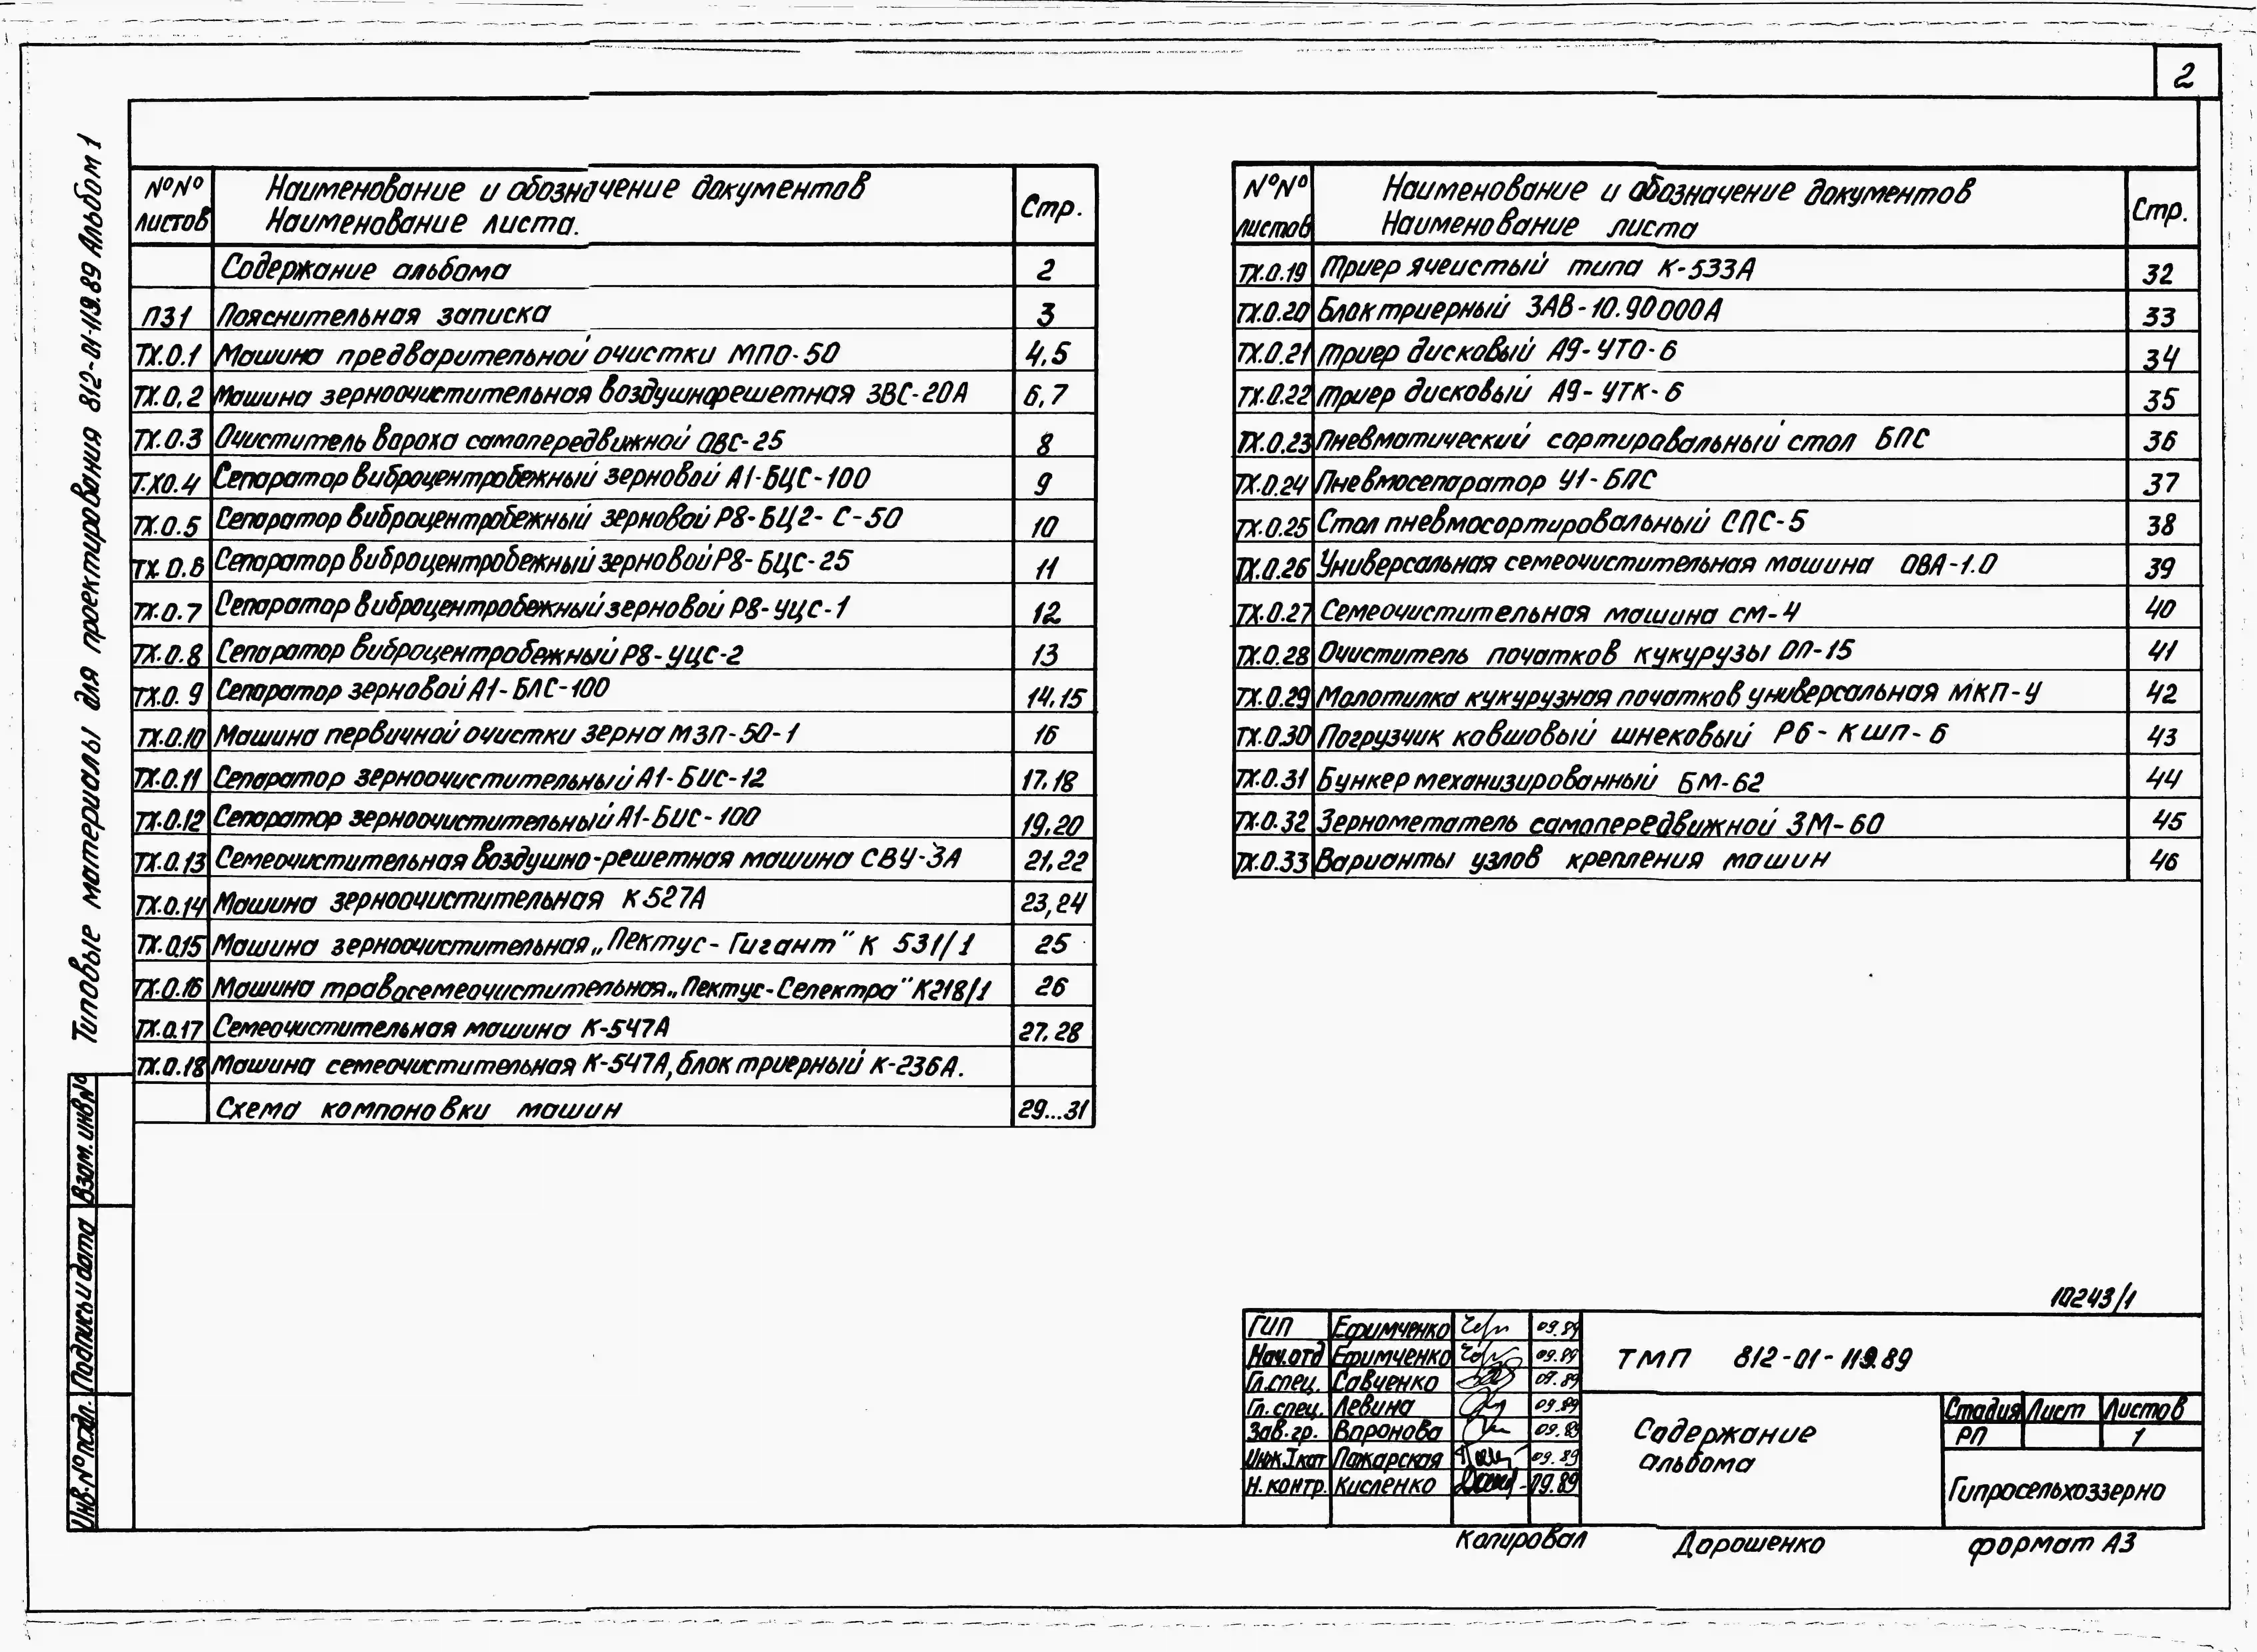 2
Типовые материалы для проектирования 812-01-119.89 Альбом 1
№№ листов
Наименование и обозначение документов
Наименование листа.
Стр.
Содержание альбома 2
ПЗ1 Пояснительная записка 3
ТХ.0.1 Машина предварительной очистки МПО-50 4,5
ТХ.0,2 Машина зерноочистительная воздушнорешетная ЗВС-20А 6,7
ТХ.0.3 Очиститель вороха самопередвижной ОВС-25 8
Т.Х0.4 Сепаратор виброцентробежный зерновой А1-БЦС-100 9
ТХ.0.5 Сепаратор виброцентробежный зерновой Р8-БЦ2-С-50 10
ТХ.0.6 Сепаратор виброцентробежный зерновой Р8-БЦС-25 11
ТХ.0.7 Сепаратор виброцентробежный зерновой Р8-УЦС-1 12
ТХ.0.8 Сепаратор виброцентробежный Р8-УЦС-2 13
ТХ.0.9 Сепаратор зерновой А1-БЛС-100 14,15
ТХ.0.10 Машина первичной очистки зерна МЗП-50-1 16
ТХ.0.11 Сепаратор зерноочистительный А1-БИС-12 17,18
ТХ.0.12 Сепаратор зерноочистительный А1-БИС-100 19,20
ТХ.0.13 Семеочистительная воздушно-решетная машина СВУ-3А 21,22
ТХ.0.14 Машина зерноочистительная К-527А 23,24
ТХ.0.15 Машина зерноочистительная „Пектус-Гигант" К 531/1 25
ТХ.0.16 Машина травосемеочистительная „Пектус-Селектра" К218/1 26
ТХ.0.17 Семеочистительная машина К-547А 27,28
ТХ.0.18 Машина семеочистительная К-547А, блок триерный К-236А.
Схема компоновки машин 29...31
№№ листов
Наименование и обозначение документов
Наименование листа
Стр.
ТХ.0.19 Триер ячеистый типа К-533А 32
ТХ.0.20 Блок триерный ЗАВ-10.90000А 33
ТХ.0.21 Триер дисковый А9-УТО-6 34
ТХ.0.22 Триер дисковый А9-УТК-6 35
ТХ.0.23 Пневматический сортировальный стол БПС 36
ТХ.0.24 Пневмосепаратор У1-БПС 37
ТХ.0.25 Стол пневмосортировальный СПС-5 38
ТХ.0.26 Универсальная семеочистительная машина ОВА-1.0 39
ТХ.0.27 Семеочистительная машина СМ-4 40
ТХ.0.28 Очиститель початков кукурузы ОП-15 41
ТХ.0.29 Молотилка кукурузная початков универсальная МКП-У 42
ТХ.0.30 Погрузчик ковшовый шнековый Р6-КШП-6 43
ТХ.0.31 Бункер механизированный БМ-62 44
ТХ.0.32 Зернометатель самопередвижной ЗМ-60 45
ТХ.0.33 Варианты узлов крепления машин 46
Взам. инв №
Подпись и дата
Инв. № подл.
10243/1
ГИП Ефимченко 09.89
Нач.отд Ефимченко 09.89
Гл.спец. Савченко 09.89
Гл.спец. Левина 09.89
Зав.гр. Воронова 09.89
Инж.I кат Пожарская 09.89
Н.контр. Кисленко 09.89
ТМП 812-01-119.89
Содержание
альбома
Стадия Лист Листов
РП 1
Гипросельхоззерно
Копировал Дорошенко формат А3